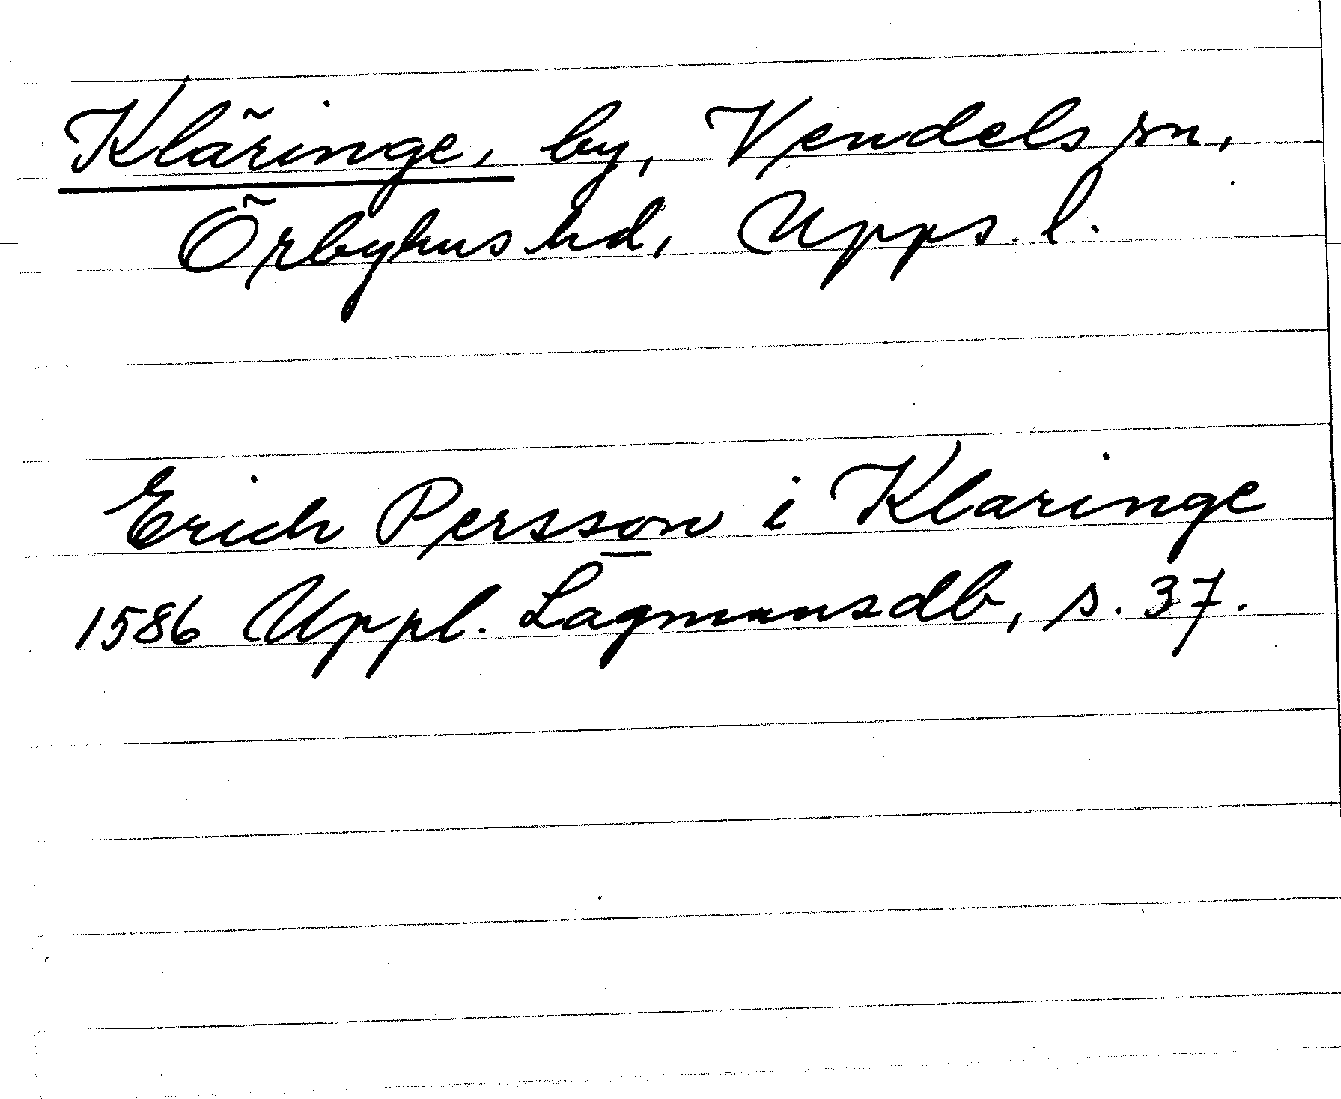 Kläringe, by, Vendels sn,
Örbyhus hd, Upps. l.
Erich Persson i Klaringe
1586 Uppl. Lagmansdb, s. 37.